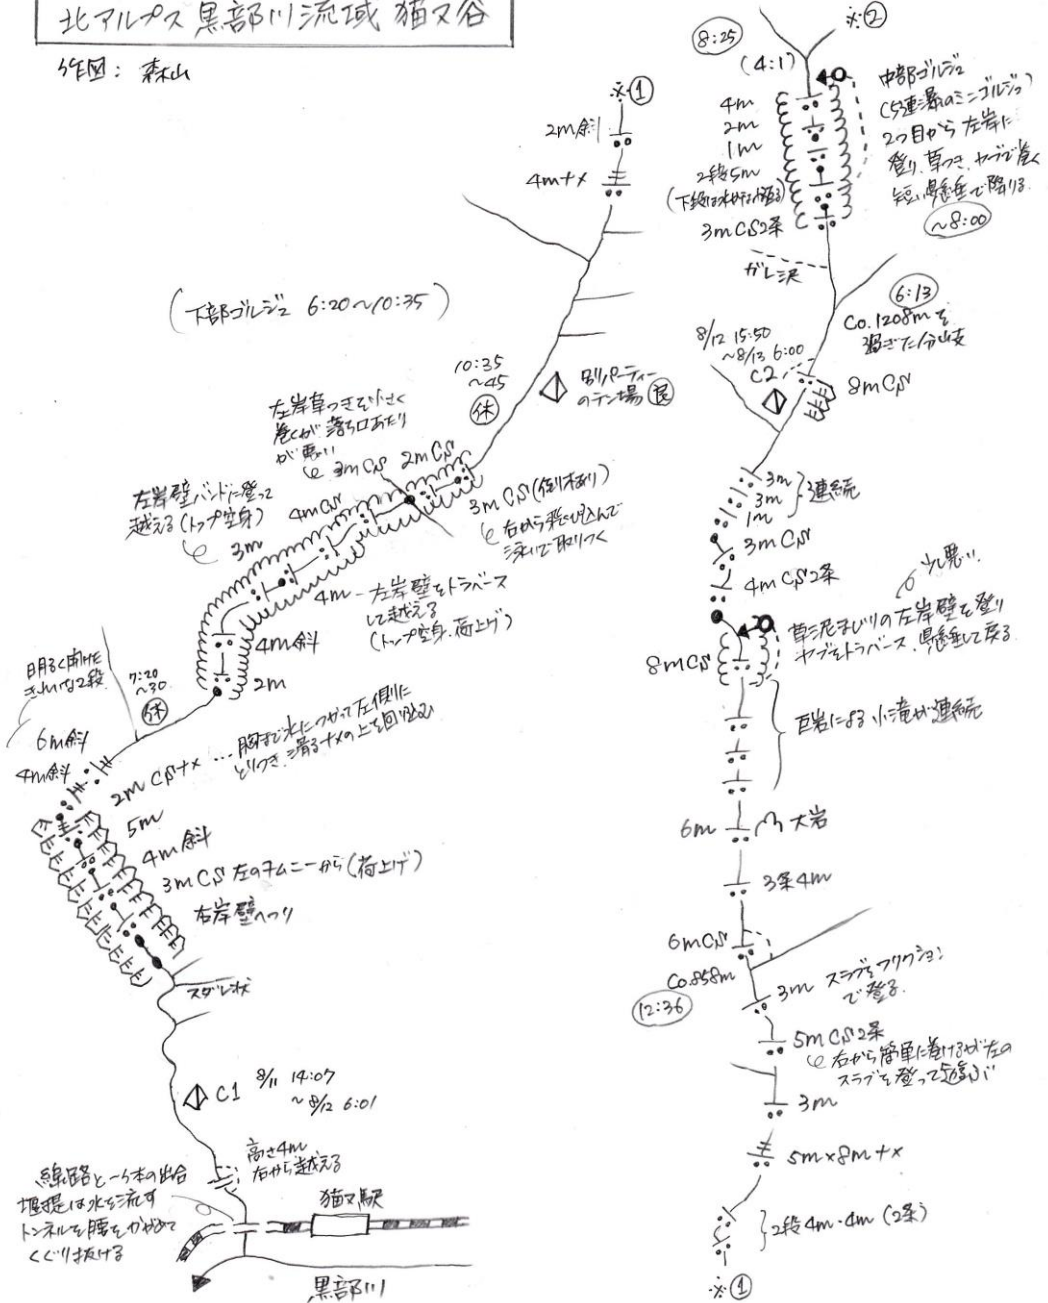 北アルプス 黒部川流域 猫又谷
作図： 森山
※①
2m斜
4mナメ
(下部ゴルジュ 6:20〜10:35)
10:35
〜45
休
別パーティー
のテン場
左岸草つきを小さく
巻くが 落ち口あたり
が悪い
3mCS 2mCS
4mCS
3m
左岸壁バンドに登って
越える(トップ空身)
3mCS(倒木あり)
右から飛び込んで
泳いで取りつく
4m - 左岸壁をトラバース
して越える
(トップ空身、荷上げ)
4m斜
2m
明るく開けた
きれいな2段
7:20
〜30
休
6m斜
4m斜
2mCSナメ … 胸まで水につかって左側に
とりつき、滑るナメの上を回り込む
5m
4m斜
3mCS 左のチムニーから(荷上げ)
右岸壁へつり
スダレ状
C1 8/11 14:07
〜8/12 6:01
高さ4m
右から越える
線路と一ろ本の出合
堰堤は水を流す
トンネルを腰をかがめて
くぐり抜ける
猫又駅
黒部川
※②
8:25
(4:1)
4m
2m
1m
2段5m
3mCS2条
中部ゴルジュ
(5連瀑のミニゴルジュ)
2つ目から左岸に
登り、草つき、ヤブで巻く
短い懸垂で降りる
〜8:00
ガレ沢
6:13
Co.1208mを
過ぎた分岐
8/12 15:50
〜8/13 6:00
C2
8mCS
3m
3m
1m
3連続
3mCS
4mCS2条
少し悪い
8mCS
草泥まじりの左岸壁を登り
ヤブをトラバース、懸垂して戻る
巨岩による小滝が連続
6m
大岩
3条4m
6mCS
Co.858m
12:36
3m スラブをフリクション
で登る
5mCS2条
右から簡単に巻けるが左の
スラブを登って遊ぶ
3m
5m×8mナメ
2段4m・4m(2条)
※①